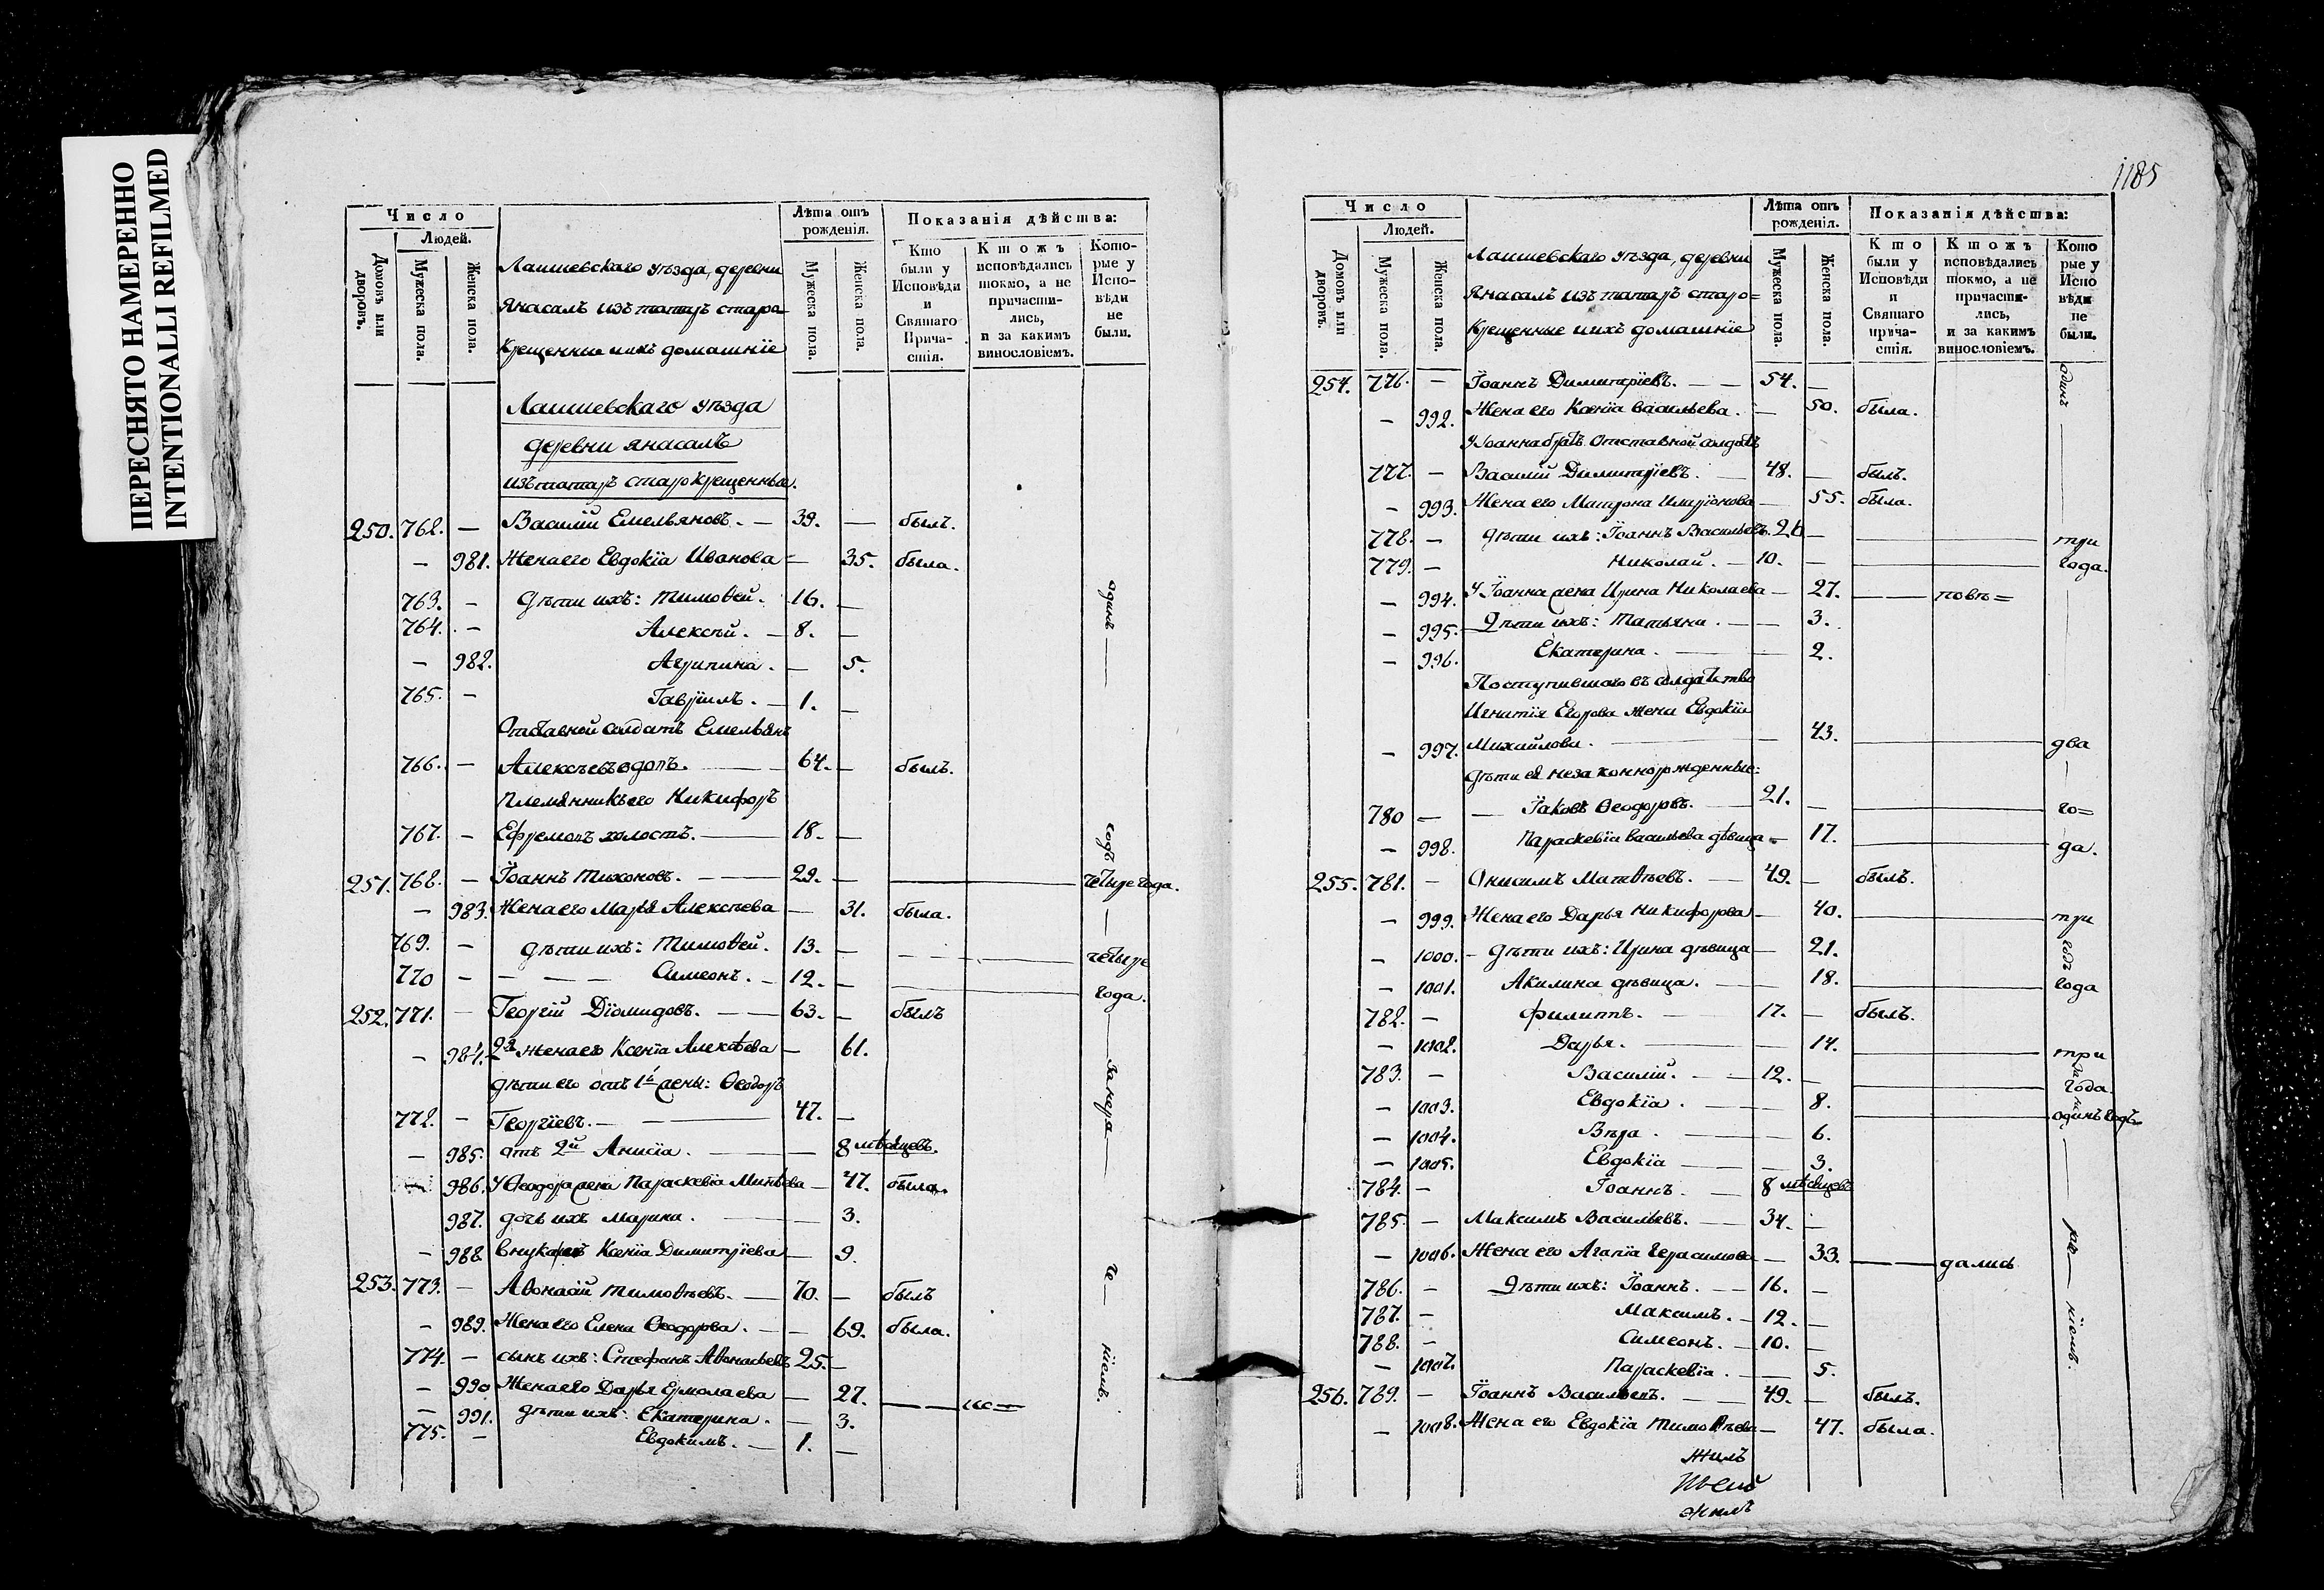 ПЕРЕСНЯТО НАМЕРЕННО
INTENTIONALLI REFILMED
Число
Людей.
Домовъ или дворовъ.
Мужеска пола.
Женска пола.
Лаишевскаго уѣзда, деревни
Янасалъ изъ татаръ старо
крещенные и ихъ домашніе
Лѣта отъ рожденія.
Мужеска пола.
Женска пола.
Показанія дѣйства:
Кто были у Исповѣди и Святаго Прича-стія.
Ктожъ исповѣдались токмо, а не причасти-лись, и за какимъ винословіемъ.
Кото-рые у Испо-вѣди не были.
Лаишевскаго уѣзда
деревни Янасалъ
изъ татаръ старокрещенные.
250. 762. — Василій Емельяновъ. — 39. — былъ.
— 981. Жена его Евдокія Иванова — 35. была.
763. — Дѣти ихъ: Тимоѳей. 16. —
764. — Алексѣй. — 8. —
— 982. Агрипина. — 5.
765. — Гавріилъ. — 1. —
один
Отставной солдатъ Емельянъ
766. — Алексѣевъ вдовъ. — 64. — былъ.
Племянникъ его Никифоръ
767. — Ефремовъ холостъ. — 18. —
годъ
251. 768. — Іоаннъ Тихоновъ. — 29. — четыре года.
— 983. Жена его Марья Алексѣева — 31. была.
769. — Дѣти ихъ: Тимоѳей. 13. — четыре
770 — Симеонъ. — 12. — года.
252. 771. — Георгій Діомидовъ. — 63. — былъ
— 984. 2я жена его Ксенія Алексѣева — 61.
дѣти его отъ 1й жены: Ѳеодоръ
772. — Георгіевъ. — 47. —
— 985. отъ 2й Анисія. — 8 мѣсяцевъ.
986. У Ѳеодора жена Параскевія Минѣева — 47. была.
987. дочь ихъ Марина. — 3.
— 988 внука Ксенія Димитріева — 9.
253. 773. — Аѳонасій Тимоѳѣевъ. — 70. — былъ
— 989. Жена его Елена Ѳеодорова. — 69. была.
774. — сынъ ихъ: Стефанъ Аѳонасьевъ 25. —
— 990 Жена его Дарья Ермолаева — 27. — ис=
— 991. дѣти ихъ: Екатерина. — 3.
775. — Евдокимъ. — 1. —
1185
Число
Людей.
Домовъ или дворовъ.
Мужеска пола.
Женска пола.
Лаишевскаго уѣзда, деревни
Янасалъ изъ татаръ старо=
крещенные и ихъ домашніе
Лѣта отъ рожденія.
Мужеска пола.
Женска пола.
Показанія дѣйства:
Кто были у Исповѣди и Святаго прича-стія.
Ктожъ исповѣдались токмо, а не причастя-лись, и за какимъ винословіемъ.
Кото рые у Испо вѣди не были.
254. 776. — Іоаннъ Димитріевъ. — 54. — одинъ
— 992. Жена его Ксенія Васильева. — 50. была.
У Іоанна братъ отставной солдатъ
777. — Василій Димитріевъ. — 48. — былъ.
— 993. Жена его Матрона Иларіонова — 55. была.
778. — Дѣти ихъ: Іоаннъ Васильевъ. 26 — три
779. — Николай. — 10. — года.
— 994. У Іоанна жена Ирина Николаева — 27. — повѣ=
— 995. Дѣти ихъ: Татьяна. — 3.
— 996. Екатерина. — 2.
Поступившаго въ солдатство
Игнатія Егорова жена Евдокія
— 997. Михайлова. — 43. — два
Дѣти ея незаконнорожденные:
780 — Іаковъ Ѳеодоровъ. — 21. — го=
— 998. Параскевія Васильева дѣвица — 17. — да.
255. 781. — Онисимъ Матвѣевъ. — 49. — былъ.
— 999. Жена его Дарья Никифорова — 40. — три
— 1000. — Дѣти ихъ: Ирина дѣвица — 21.
годъ
— 1001. Акилина дѣвица. — 18. — года
782. — Филиппъ. — 17. — былъ.
— 1002. Дарья. — 14. — три
783. — Василій. — 12. — года.
— 1003. Евдокія. — 8. — одинъ годъ
— 1004. Вѣра. — 6.
— 1005. Евдокія — 3.
784. — Іоаннъ. — 8 мѣсяцевъ
785. — Максимъ Васильевъ. — 34. —
— 1006. Жена его Агапія Герасимова — 33. — дались
786. — Дѣти ихъ: Іоаннъ. — 16. —
787. — Максимъ. — 12. —
788. — Симеонъ. — 10. —
— 1007. Параскевія. — 5.
256. 789. — Іоаннъ Васильевъ. — 49. — былъ.
— 1008. Жена его Евдокія Тимоѳѣева — 47. была.